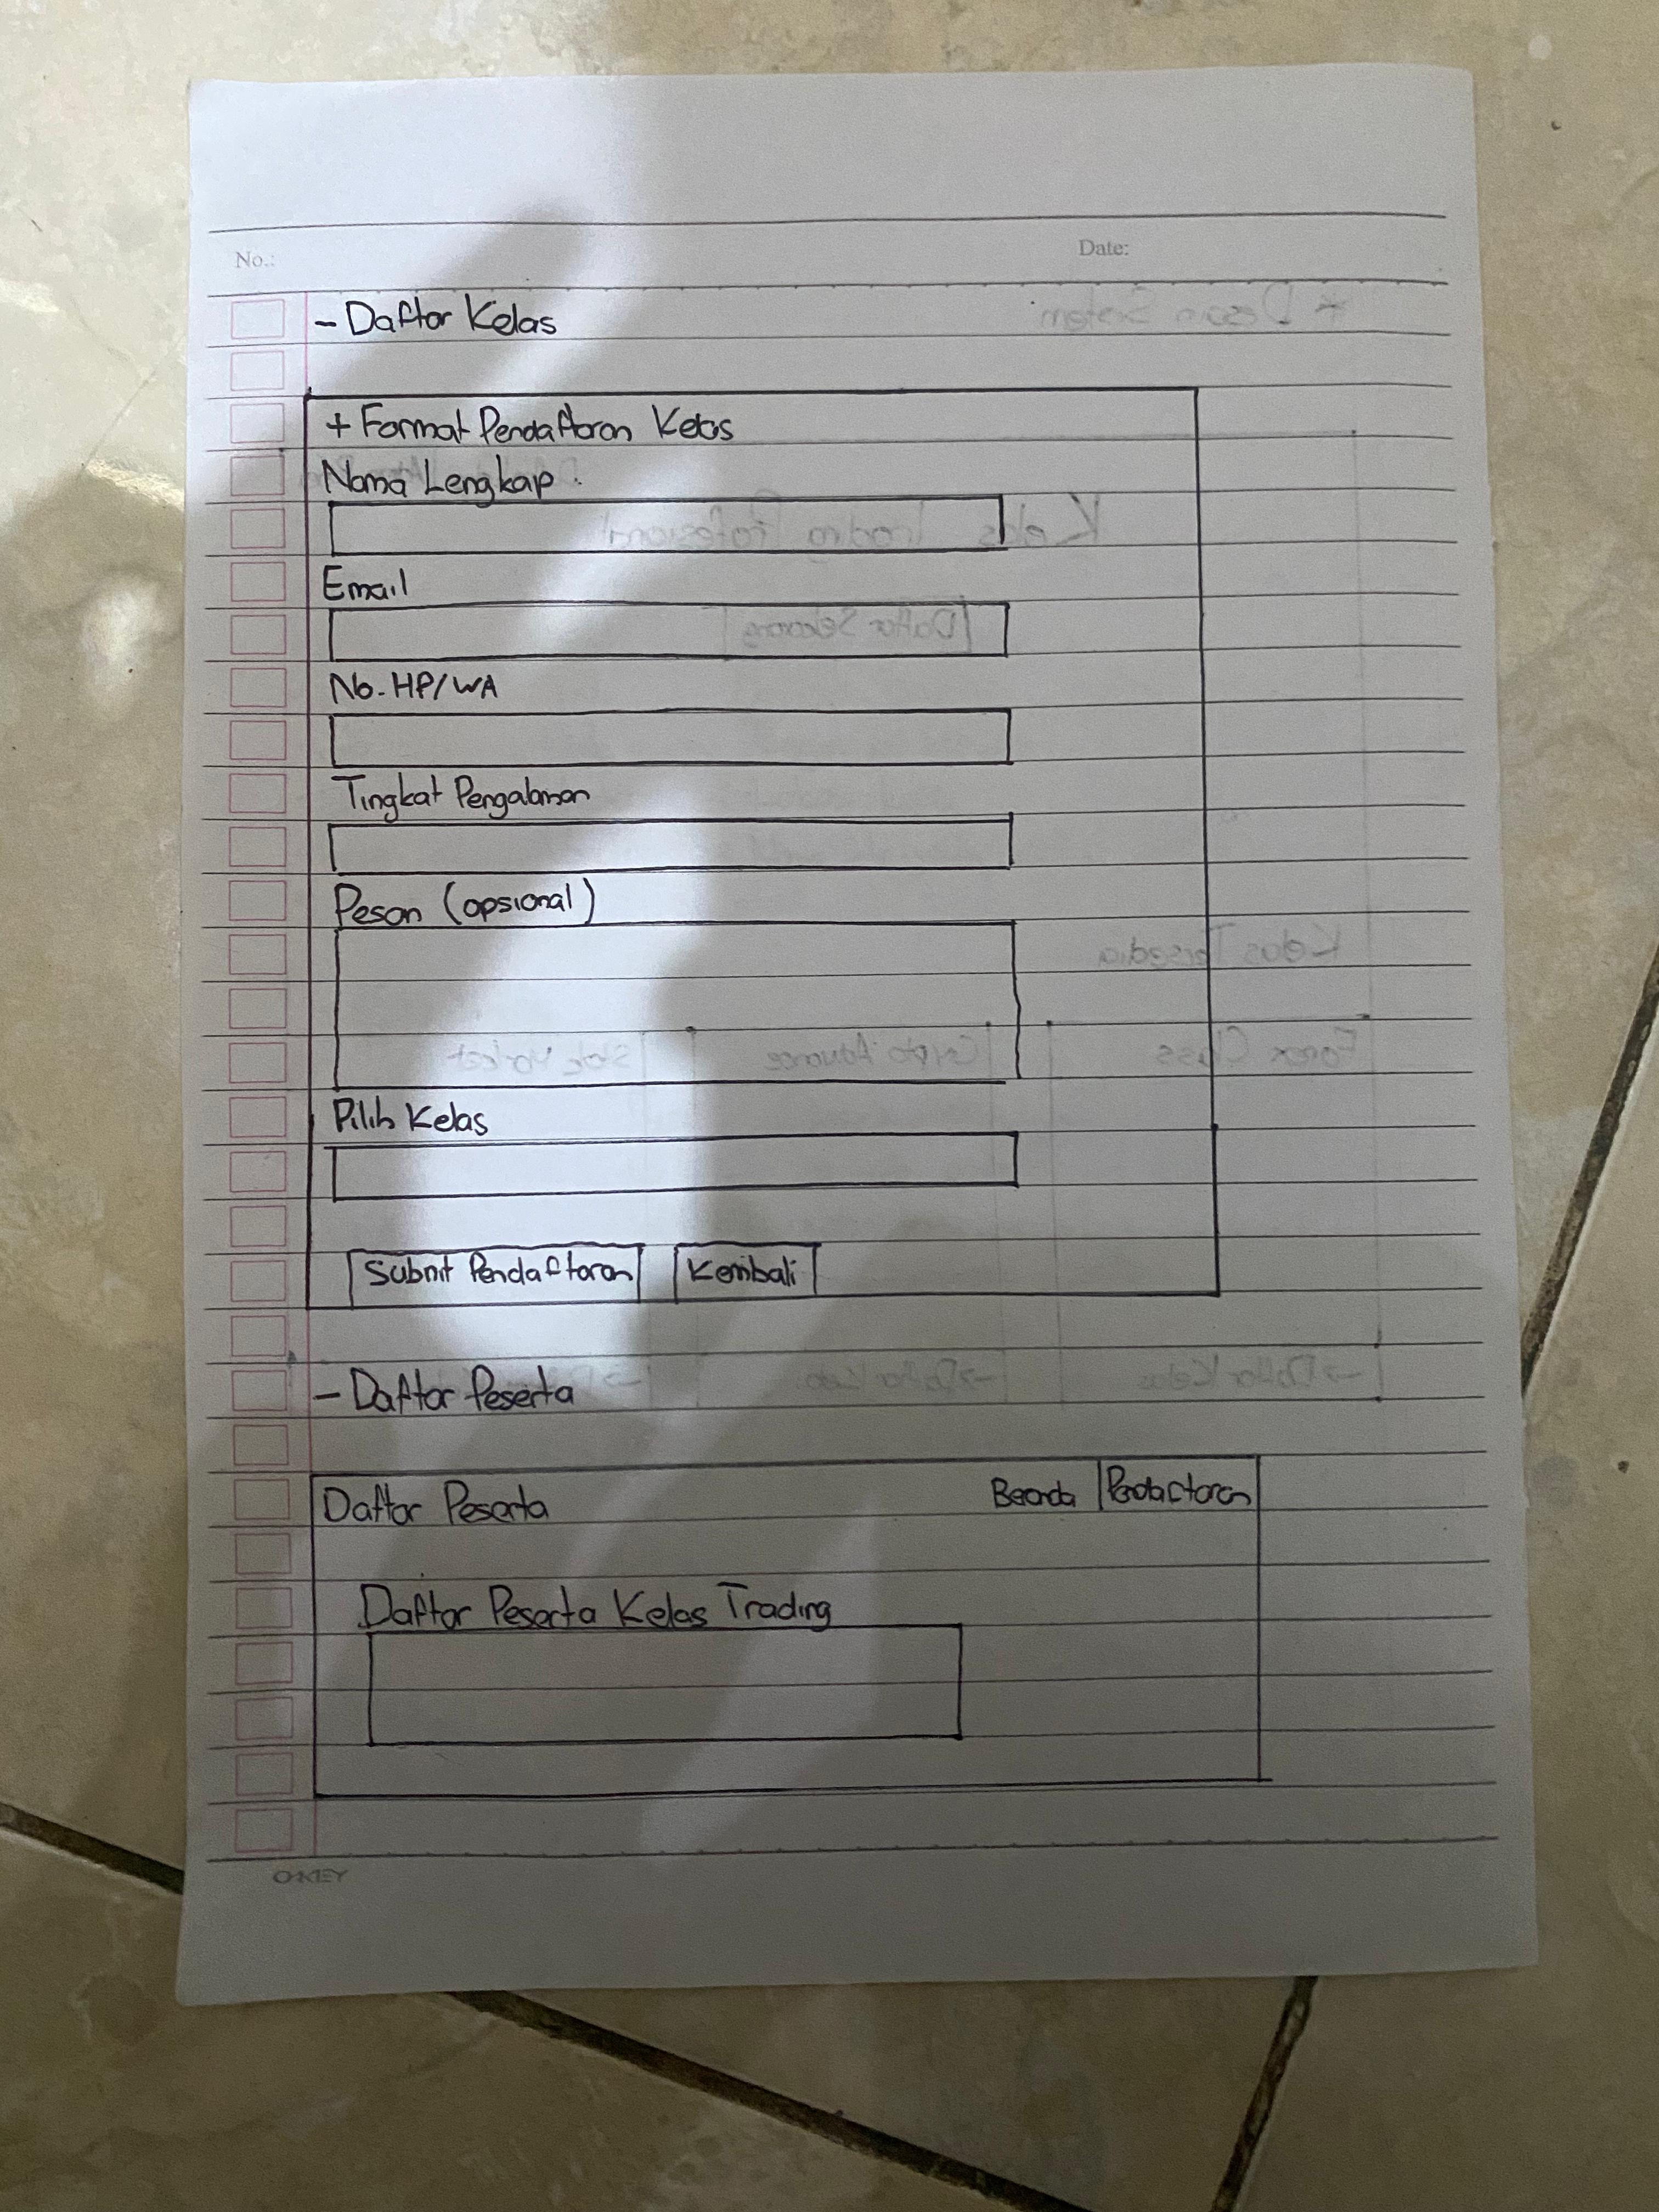 No.:
Date:
- Daftar Kelas
+ Format Pendaftaran Kelas
Nama Lengkap :
Email
No. HP/WA
Tingkat Pengalaman
Pesan (opsional)
Pilih Kelas
Submit Pendaftaran
Kembali
- Daftar Peserta
Daftar Peserta
Beranda
Pendaftaran
Daftar Peserta Kelas Trading